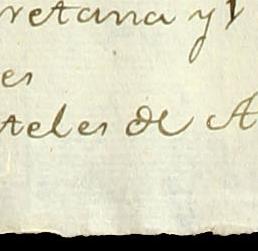 retana y
es
teles de A